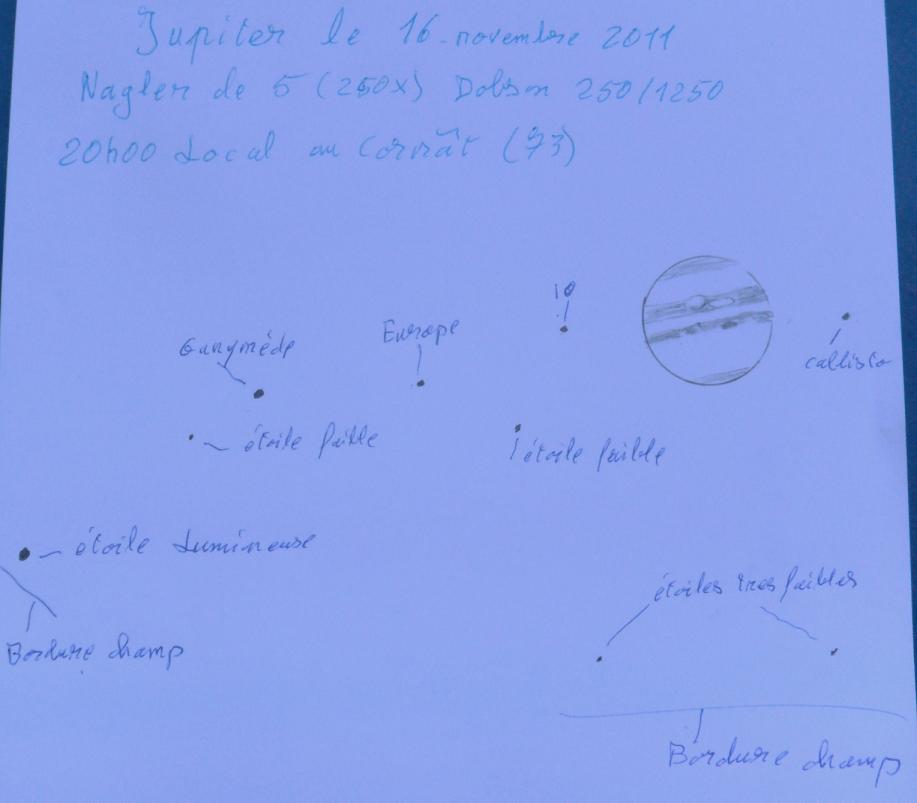 Jupiter le 16 novembre 2011
Nagler de 5 (250x) Dobson 250/1250
20h00 Local au Corvrât (73)
IO
Europe
Ganymède
callisto
étoile faible
étoile faible
étoile Lumineuse
étoiles tres faibles
Bordure champ
Bordure champ